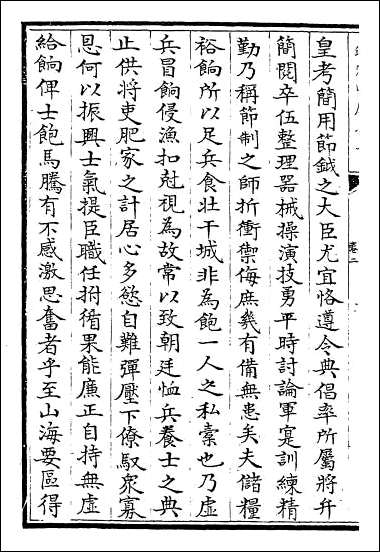 皇考簡用節鉞之大臣尤宜恪遵令典倡率所屬將弁
簡閱卒伍整理器械操演技勇平時討論軍寔訓練精
勤乃稱節制之師折衝禦侮庶幾有備無患矣夫儲糧
裕餉所以足兵食壯干城非為飽一人之私橐也乃虛
兵冒餉侵漁扣尅視為故常以致朝廷恤兵養士之典
止供將吏肥家之計居心多慾自難彈壓下僚馭眾寡
恩何以振興士氣提臣職任拊循果能廉正自持無虛
給餉俾士飽馬騰有不感激思奮者乎至山海要區得
卷二